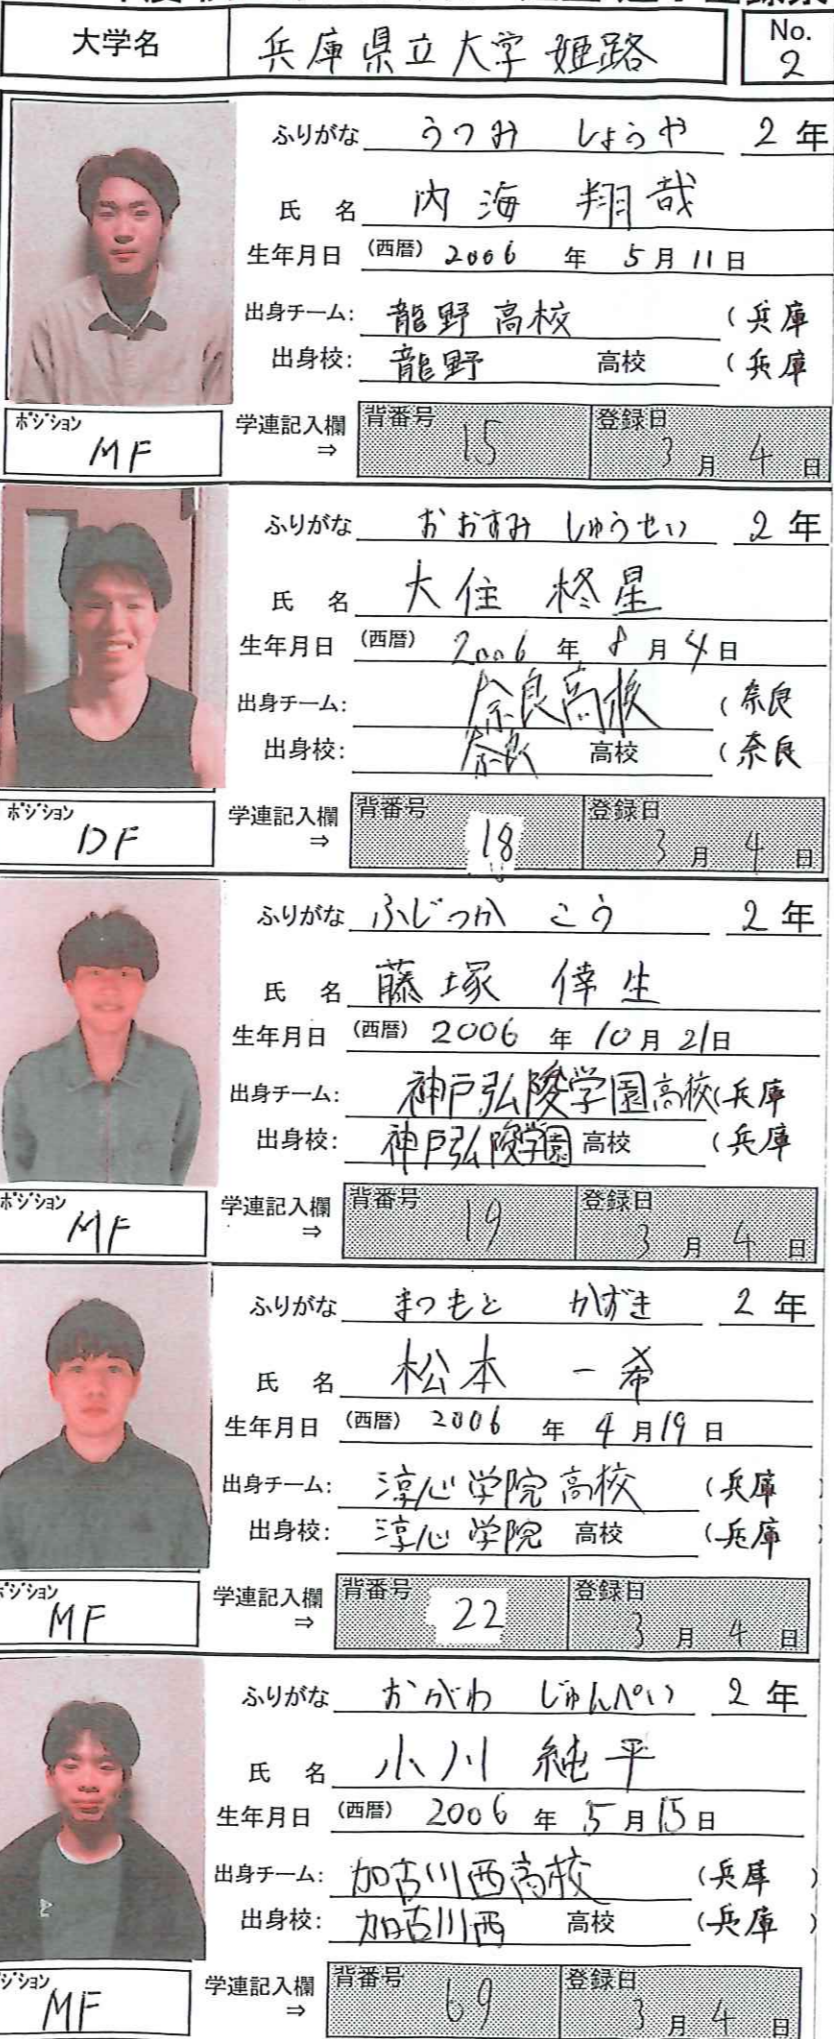 大学名 兵庫県立大学 姫路 No. 2
ふりがな うつみ しょうや 2 年
氏 名 内海 翔哉
生年月日 (西暦) 2006 年 5 月 11 日
出身チーム: 龍野高校 (兵庫
出身校: 龍野 高校 (兵庫
ポジション MF 学連記入欄 ⇒ 背番号 15 登録日 3 月 4 日
ふりがな おおすみ しゅうせい 2 年
氏 名 大住 柊星
生年月日 (西暦) 2006 年 8 月 4 日
出身チーム: 奈良高校 (奈良
出身校: 奈良 高校 (奈良
ポジション DF 学連記入欄 ⇒ 背番号 18 登録日 3 月 4 日
ふりがな ふじつか こう 2 年
氏 名 藤塚 倖生
生年月日 (西暦) 2006 年 10 月 21 日
出身チーム: 神戸弘陵学園高校 (兵庫
出身校: 神戸弘陵学園 高校 (兵庫
ポジション MF 学連記入欄 ⇒ 背番号 19 登録日 3 月 4 日
ふりがな まつもと かずき 2 年
氏 名 松本 一希
生年月日 (西暦) 2006 年 4 月 19 日
出身チーム: 淳心学院高校 (兵庫
出身校: 淳心学院 高校 (兵庫
ポジション MF 学連記入欄 ⇒ 背番号 22 登録日 3 月 4 日
ふりがな おがわ じゅんぺい 2 年
氏 名 小川 純平
生年月日 (西暦) 2006 年 5 月 15 日
出身チーム: 加古川西高校 (兵庫 )
出身校: 加古川西 高校 (兵庫 )
ポジション MF 学連記入欄 ⇒ 背番号 69 登録日 3 月 4 日